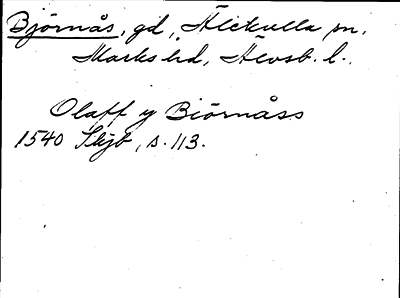 Björnås, gd, Älekulla sn.
Marks hd, Älvsb. l.
Olaff y Biörnåss
1540 Skjb, s. 113.